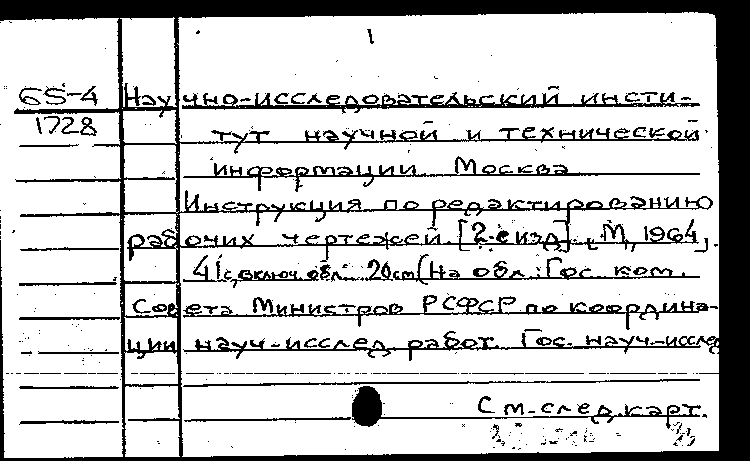 1
65-4 Научно-исследовательский инсти-
1728 тут научной и технической
информации. Москва
Инструкция по редактированию
рабочих чертежей. [2-е изд]. [М., 1964].
41с, включ. обл. 20см (На обл.: Гос. ком.
Совета Министров РСФСР по координа-
ции науч-исслед. работ. Гос. науч.-исслед
См. след. карт.